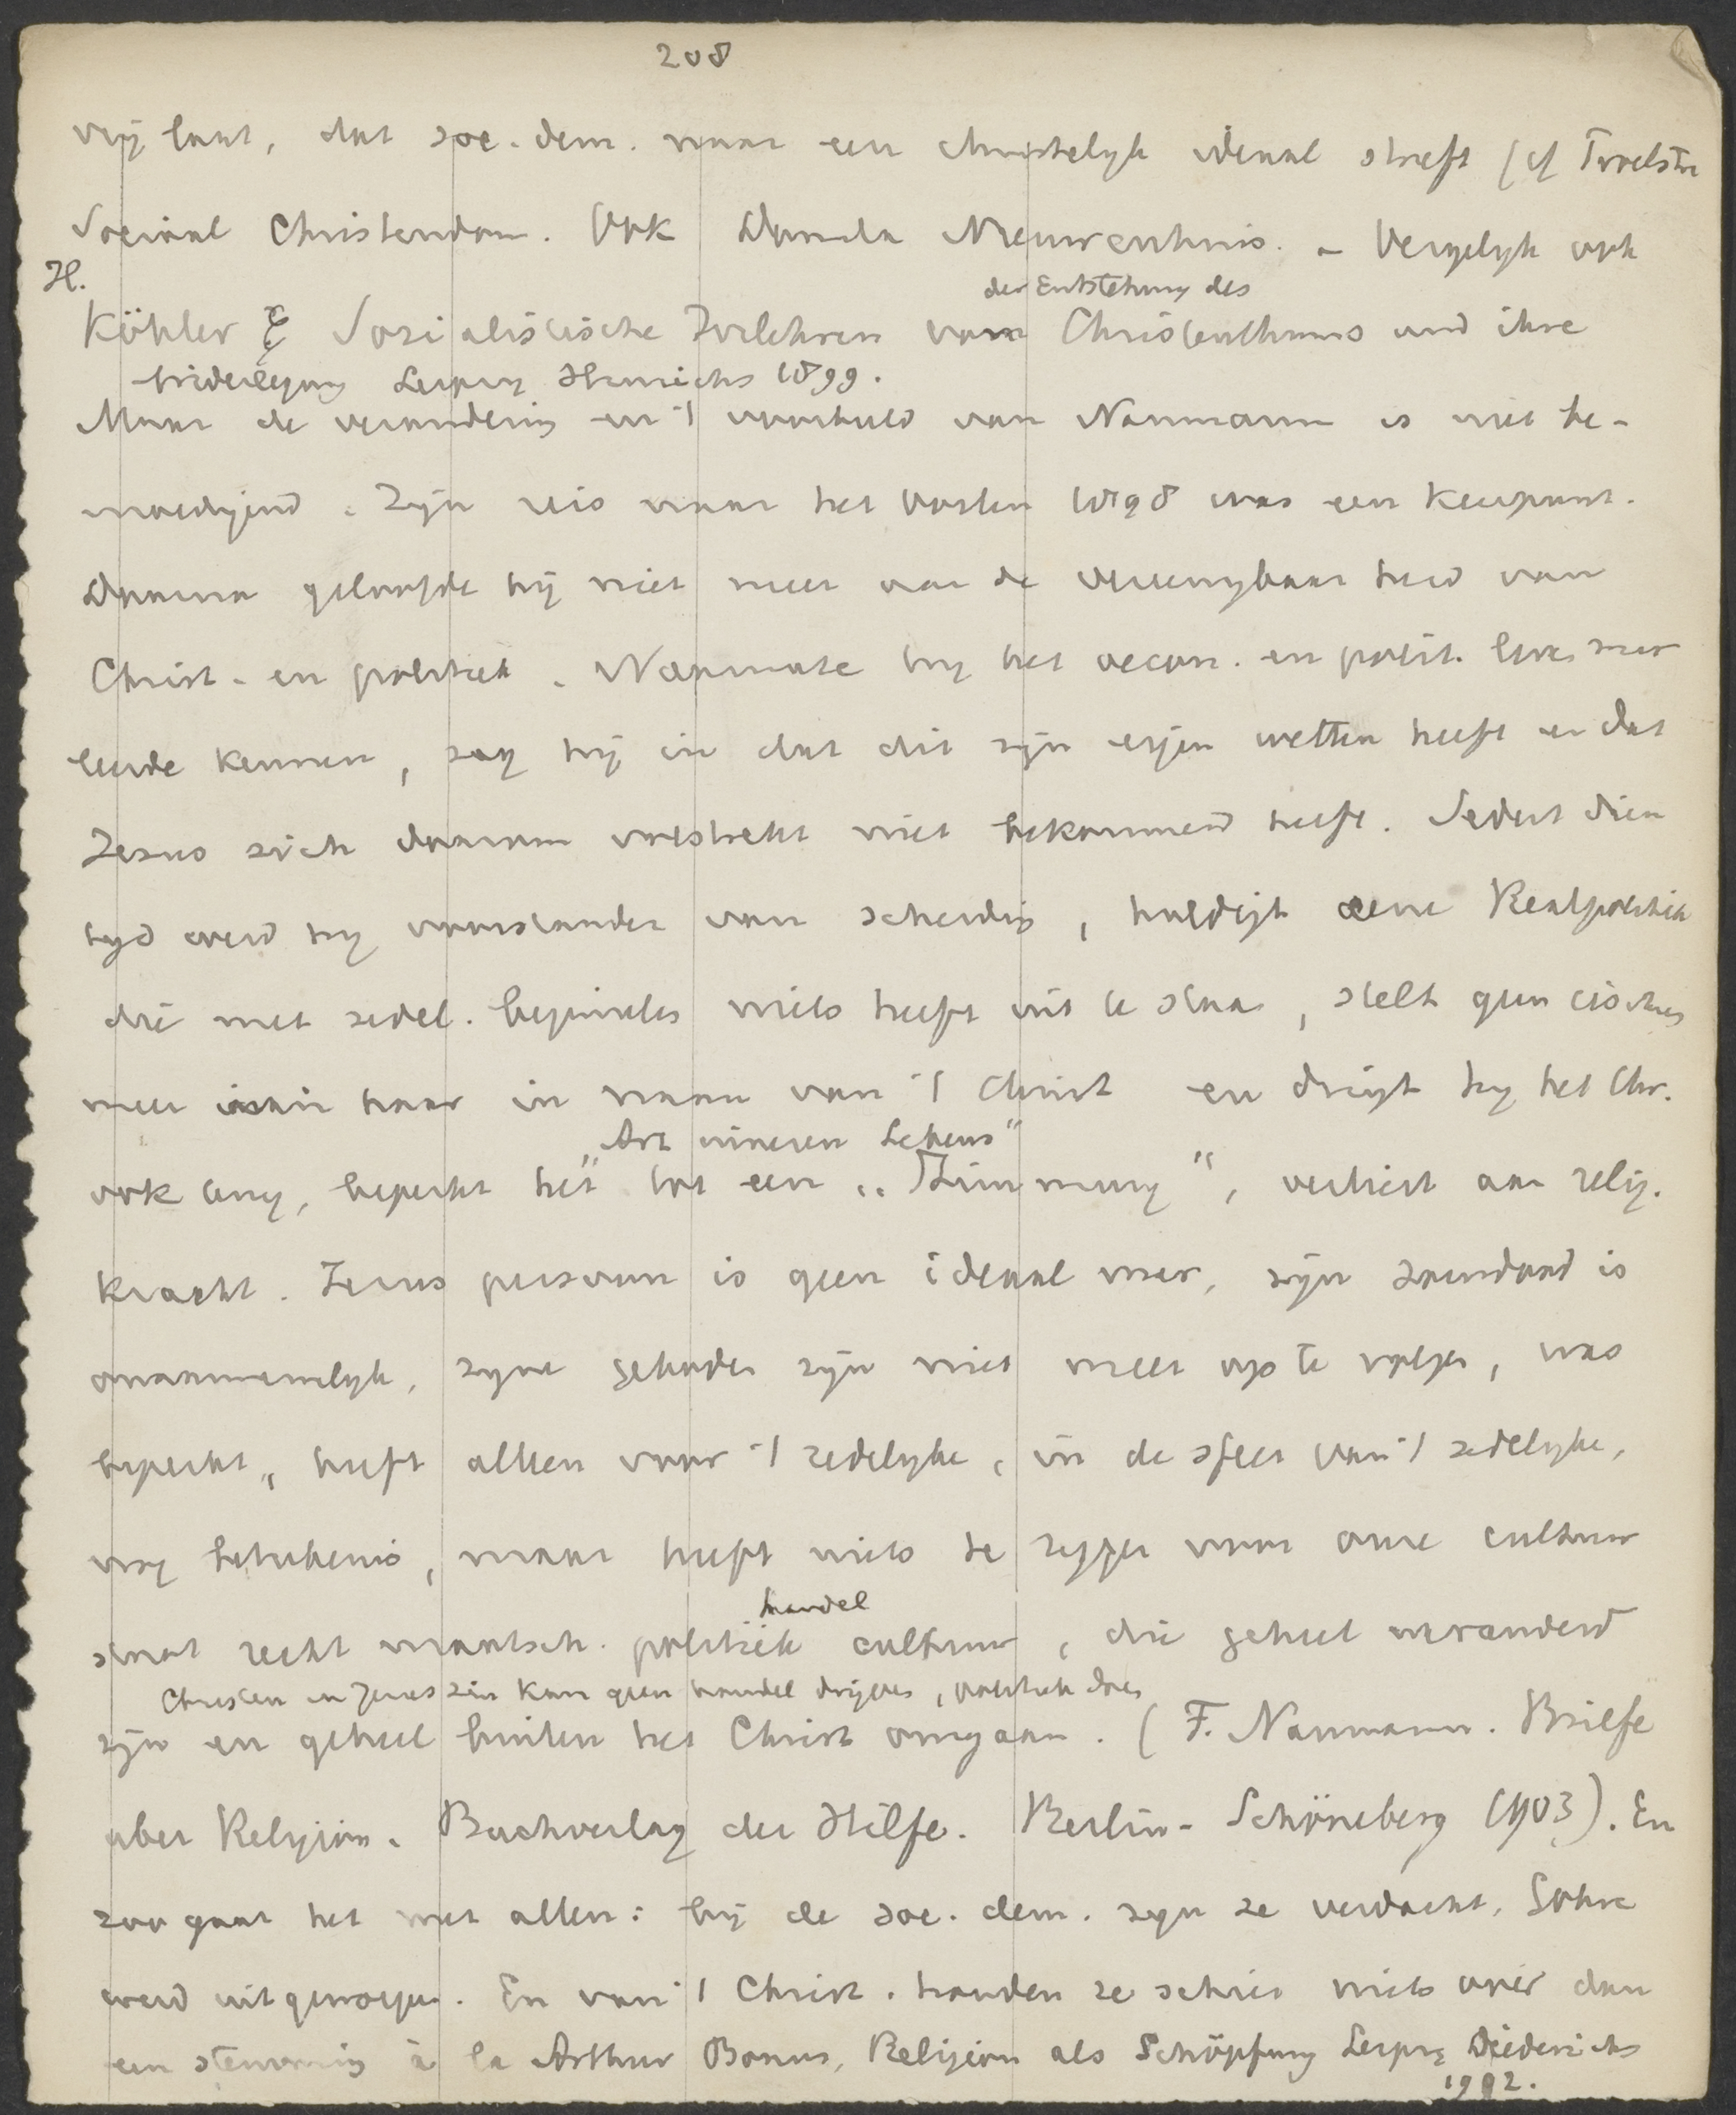 208
vrij laat, dat soc. dem. naar een christelijk ideaal streft (cf Troelstra
Sociaal Christendom. Ook Domela Nieuwenhuis. – Vergelijk ook
H.
der Entstehung des
Köhler Sozialistische Irrlehren von Christenthums und ihre
Widerlegung Leipzig Hinrichs 1899.
Maar de verandering en 't voorbeeld van Naumann is niet be-
moedigend. Zijn reis naar het Oosten 1898 was een keerpunt.
Daarna geloofde hij niet meer aan de vereenigbaarheid van
Christ. en politiek. Naarmate hij het oecon. en polit. leven meer
leerde kennen, zag hij in dat dit zijn eigen wetten heeft en dat
Jezus zich daarom volstrekt niet bekommerd heeft. Sedert dien
tijd werd hij voorstander van scheiding, huldigt eene Realpolitik
die met zedel. beginselen niets heeft uit te staan, stelt geen eischen
meer aan haar in naam van 't Christ en dringt hij het Chr.
„Art inneren Lebens"
ook terug, beperkt het tot een „Stimmung", verliest aan relig.
kracht. Jezus persoon is geen ideaal meer, zijn standaard is
onaannemelijk, zijne geboden zijn niet meer op te volgen, was
beperkt, heeft alleen voor 't zedelijke, in de sfeer van 't zedelijke,
nog beteekenis, maar heeft niets te zeggen voor onze cultuur
handel
staat recht maatsch. politiek cultuur, die geheel veranderd
Christen in Jezus zin kan geen handel drijven, politiek doen
zijn en geheel buiten het Christ omgaan. (F. Naumann. Briefe
uber Religion. Buchverlag der Hilfe. Berlin-Schöneberg 1903). En
zoo gaat het met allen: bij de soc. dem. zijn ze verdacht, Göhre
werd uitgeworpen. En van 't Christ. houden ze schier niets over dan
een stemming à la Arthur Bonus, Religion als Schöpfung Leipz Diederichs
1902.